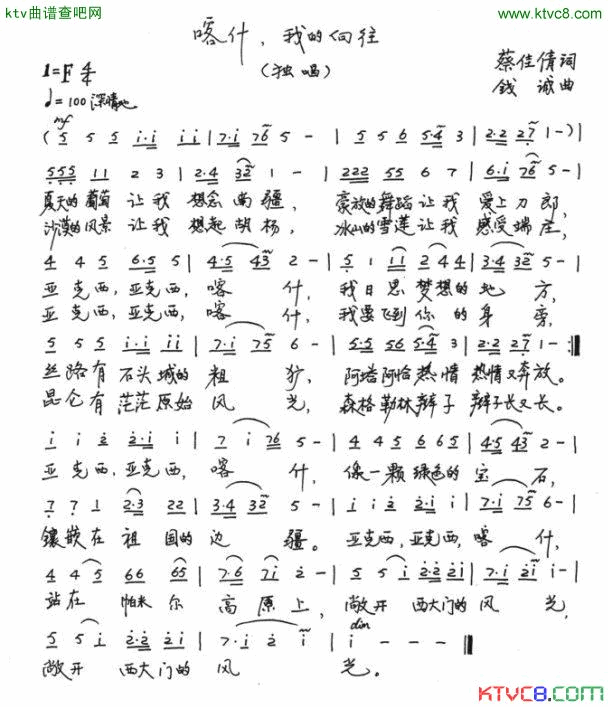 ktv曲谱查吧网
www.ktvc8.com
喀什，我的向往
(独唱)
1=F 4/4
♩=100 深情地
蔡佳倩词
钱 诚曲
mf
(5 5 5 i·i i i | 7·i 76 5 - | 5 5 6 5·4 3 | 2·2 27 1 -) |
555 11 2 3 | 2·4 32 1 - | 222 55 6 7 | 6·i 76 5 - |
夏天的葡萄 让我 想念南疆， 豪放的舞蹈让我 爱上刀郎，
沙漠的风景 让我 想起胡杨， 冰山的雪莲让我 感受端庄，
4 4 5 6·5 5 | 4·5 43 2 - | 5 1 i i 2 4 4 | 3·4 32 5 - |
亚克西，亚克西， 喀 什， 我日思梦想的地 方，
亚克西，亚克西， 喀 什， 我要飞到你的身 旁，
5 5 5 i·i i i | 7·i 75 6 - | 5 5 56 5·4 3 | 2·2 27 1 - :||
丝路有 石头城的 粗 犷， 阿塔阿恰热情 热情又奔放。
昆仑有 茫茫原始 风 光， 森格勒林辫子 辫子长又长。
i i 2 2·i i | 7 i 76 5 - | 4 4 5 6 6 5 | 4·5 43 2 - |
亚克西，亚克西， 喀 什， 像一颗绿色的 宝 石，
7 7 1 2·3 22 | 3·4 32 5 - | i i 2 2·i i | 7·i 75 6 - |
镶嵌在 祖国的 边 疆。 亚克西，亚克西，喀 什，
4 4 5 66 65 | 7·6 7i 2 - | 5 5 i 2·2 2i | 7·i 2i i - |
站在 帕米尔 高原上， 敞开 西大门的 风 光，
dim
5 5 i 2·2 2i | 7·i 2 i | i - - - ||
敞开 西大门的 风 光。
KTVC8.com